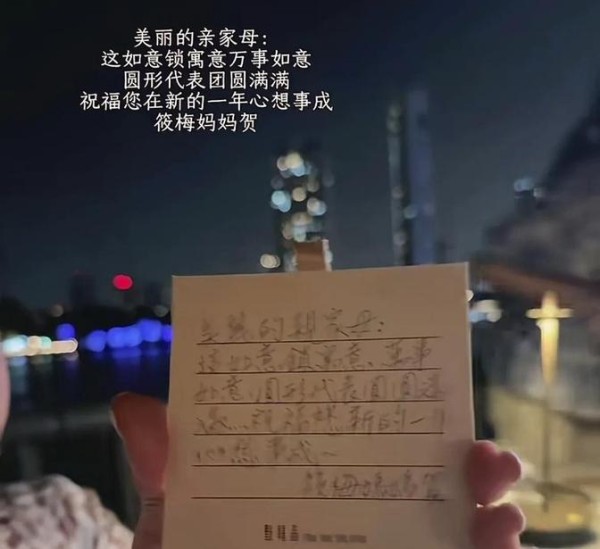 美丽的亲家母：
这如意锁寓意万事如意
圆形代表团圆满满
祝福您在新的一年心想事成
筱梅妈妈贺
美丽的亲家母：
这如意锁寓意万事
如意，圆形代表团圆满
新的一
心想事成～
筱梅妈妈贺